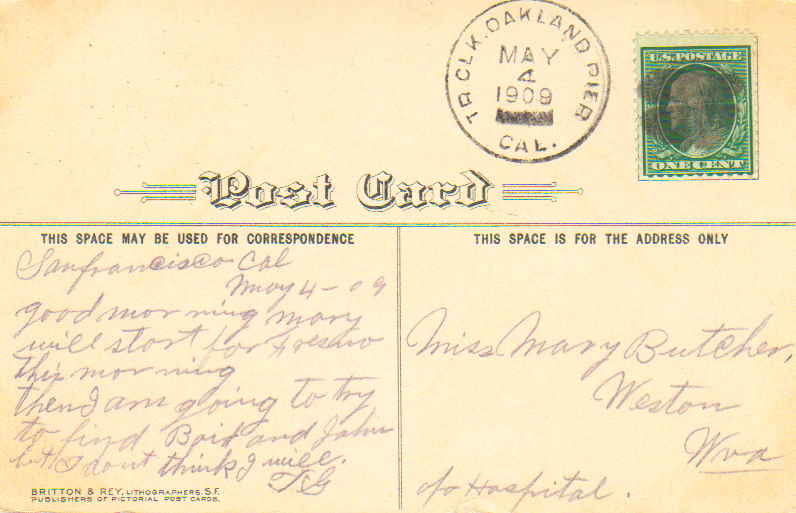 TR.CLK. OAKLAND PIER
MAY
4
1909
CAL.
U.S. POSTAGE
ONE CENT
Post Card
THIS SPACE MAY BE USED FOR CORRESPONDENCE
THIS SPACE IS FOR THE ADDRESS ONLY
Sanfrancisco Cal
May 4 - 09
good mor ning mary
will start for Fresno
this mor ning
then I am going to try
to find Boid and John
but I dont think I will.
T.G
BRITTON & REY, LITHOGRAPHERS, S.F.
PUBLISHERS OF PICTORIAL POST CARDS.
Miss Mary Butcher,
Weston
Wva
c/o Hospital.